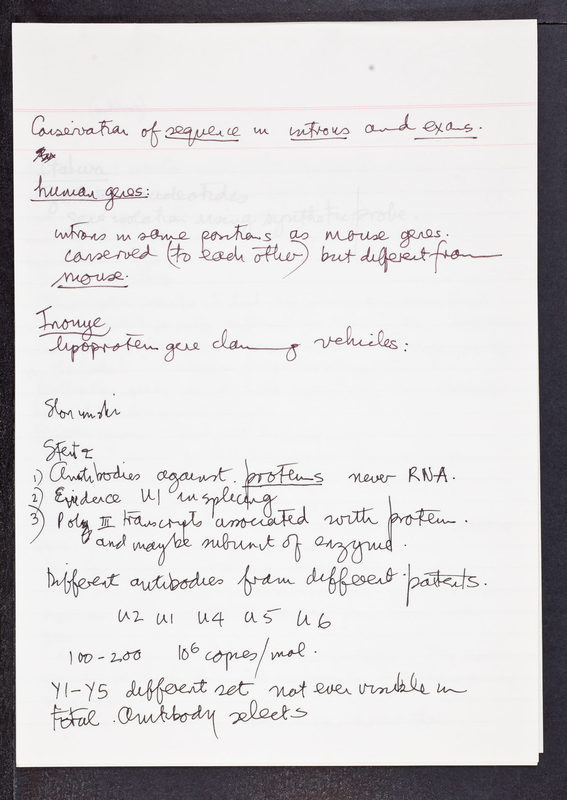 Conservation of sequence in introns and exons.
human genes:
introns in same positions as mouse genes.
conserved (to each other) but different from
mouse.
Inouye
lipoprotein gene cloning vehicles:
Slonimski
Steitz
1) Antibodies against proteins never RNA.
2) Evidence U1 in splicing
3) Poly III transcripts associated with protein.
and maybe subunit of enzyme.
Different antibodies from different patients.
U2 U1 U4 U5 U6
100-200 10⁶ copies/mol.
Y1-Y5 different set not even visible in
total. Antibody selects